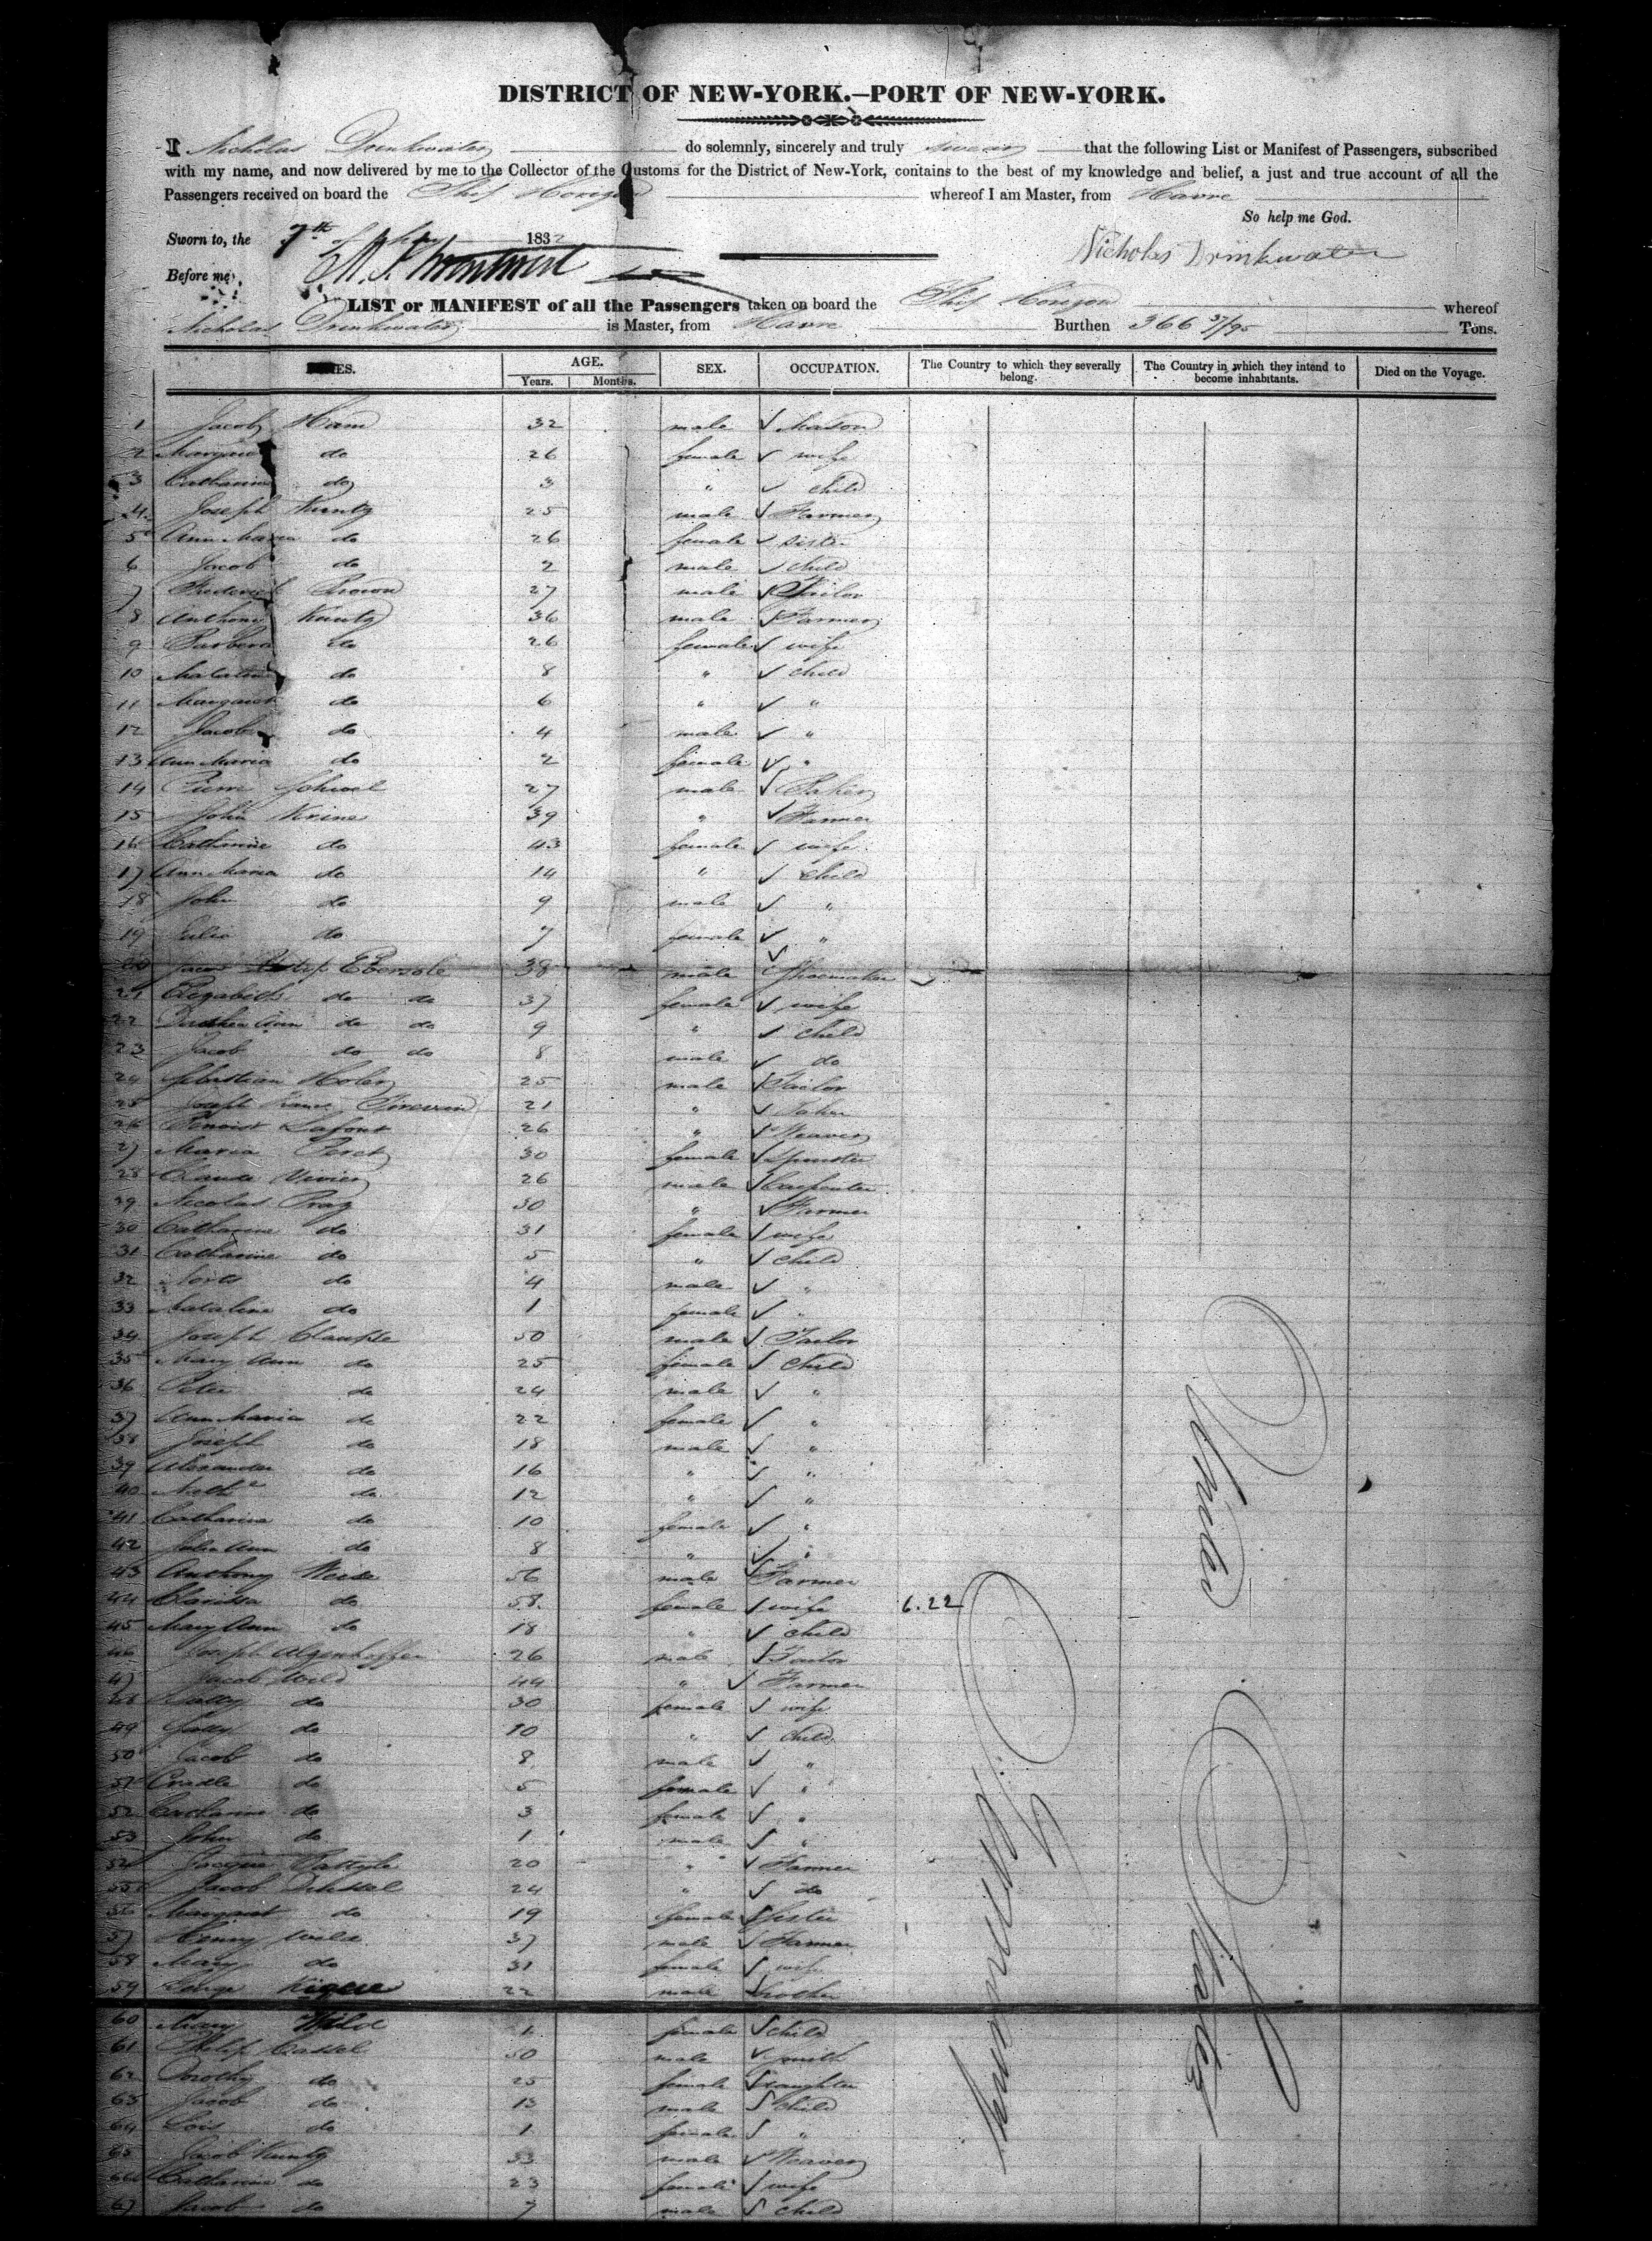 DISTRICT OF NEW-YORK.—PORT OF NEW-YORK.
I Nicholas Drinkwater do solemnly, sincerely and truly swear that the following List or Manifest of Passengers, subscribed
with my name, and now delivered by me to the Collector of the Customs for the District of New-York, contains to the best of my knowledge and belief, a just and true account of all the
Passengers received on board the Ship whereof I am Master, from Havre
So help me God.
Sworn to, the 7th 1832
Nicholas Drinkwater
Before me,
LIST or MANIFEST of all the Passengers taken on board the Ship whereof
Nicholas Drinkwater is Master, from Havre Burthen 366 37/95 Tons.
NAMES. AGE. SEX. OCCUPATION. The Country to which they severally belong. The Country in which they intend to become inhabitants. Died on the Voyage.
Years. Months.
1 Jacob Ham 32 male Mason
2 Margaret do 26 female wife
3 Catharine do 3 " child
4 Joseph Kuntz 25 male Farmer
5 Ann Maria do 26 female sister
6 Jacob do 2 male child
7 Frederick Brown 27 male Tailor
8 Anthony Kuntz 36 male Farmer
9 Barbara do 26 female wife
10 do 8 " child
11 Margaret do 6 " "
12 Jacob do 4 male "
13 Ann Maria do 2 female "
14 27 male Baker
15 John Krine 39 " Farmer
16 Catherine do 43 female wife
17 Ann Maria do 14 " child
18 John do 9 male "
19 Julia do 7 female "
20 Jacob Ebersole 38 male Shoemaker
21 Elizabeth do do 37 female wife
22 Ann do do 9 " child
23 Jacob do do 8 male do
24 Sebastian 25 male Tailor
25 Joseph 21 " Baker
26 Benoist Lafont 26 " Weaver
27 Maria 30 female Spinster
28 Claude Vivier 26 male Carpenter
29 Nicolas Pray 30 " Farmer
30 Catharine do 31 female wife
31 Catharine do 5 " child
32 do 4 male "
33 do 1 female "
34 Joseph 50 male Tailor
35 Mary Ann do 25 female child
36 Peter do 24 male "
37 Ann Maria do 22 female "
38 Joseph do 18 male "
39 Alexander do 16 " "
40 do 12 " "
41 Catharine do 10 female "
42 Julia Ann do 8 " "
43 Anthony 56 male Farmer
44 Clarissa do 58 female wife 6.22
45 Mary Ann do 18 " child
46 Joseph 26 male Tailor
47 Jacob Wild 44 " Farmer
48 Sally do 30 female wife
49 Sally do 10 " child
50 Jacob do 8 male "
51 do 5 female "
52 Catharine do 3 female "
53 John do 1 male "
54 20 " Farmer
55 Jacob 24 " do
56 Margaret do 19 female sister
57 Henry Wild 37 male Farmer
58 Mary do 31 female wife
59 George 22 male brother
60 Mary Wild 1 female child
61 Philip Cassel 50 male smith
62 Dorothy do 25 female daughter
63 Jacob do 13 male child
64 Lois do 1 female "
65 Jacob Kuntz 33 male Weaver
66 Catharine do 23 female wife
67 Jacob do 7 male child
United States